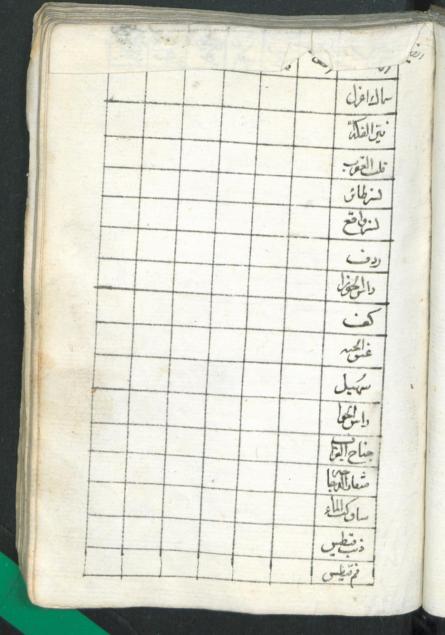 سماك اعزل
نير الفكة
قلب العقرب
نسر طائر
نسر واقع
ردف
راس الجوزا
كف
عنق الحيه
سهيل
راس الحوا
جناح الغراب
ساكب الماء
ذنب قيطس
فم قيطس